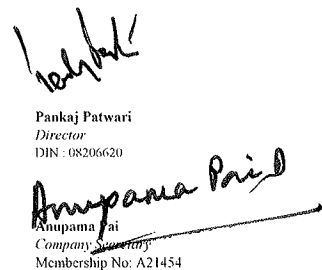 Pankaj Patwari
Director
DIN : 08206620
Anupama Pai
Anupama Pai
Company Secretary
Membership No: A21454